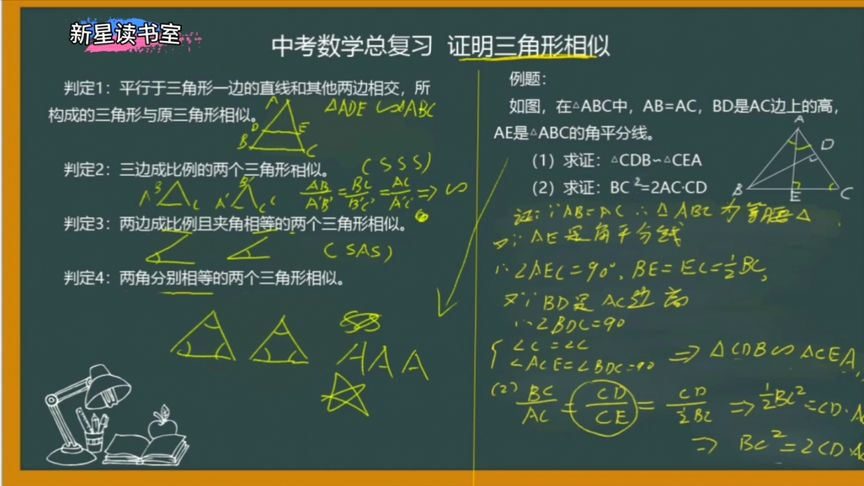 新星读书室
中考数学总复习 证明三角形相似
判定1：平行于三角形一边的直线和其他两边相交，所
构成的三角形与原三角形相似。
△ADE∽△ABC
A
D E
B C
判定2：三边成比例的两个三角形相似。
(SSS)
A B C A' B' C'
AB/A'B' = BC/B'C' = AC/A'C' ⇒ ∽
判定3：两边成比例且夹角相等的两个三角形相似。
(SAS)
判定4：两角分别相等的两个三角形相似。
AAA
例题：
如图，在△ABC中，AB=AC，BD是AC边上的高，
AE是△ABC的角平分线。
（1）求证：△CDB∽△CEA
（2）求证：BC²=2AC·CD
A
D
B E C
证：∵AB=AC ∴△ABC为等腰△
又∵AE是角平分线
∴∠AEC=90°，BE=EC=½BC，
又∵BD是AC边高
∴∠BDC=90
∠C=∠C
∠ACE=∠BDC=90 ⇒ △CDB∽△CEA
(2) BC/AC = CD/CE = CD/½BC ⇒ ½BC²=CD·AC
⇒ BC²=2CD·AC